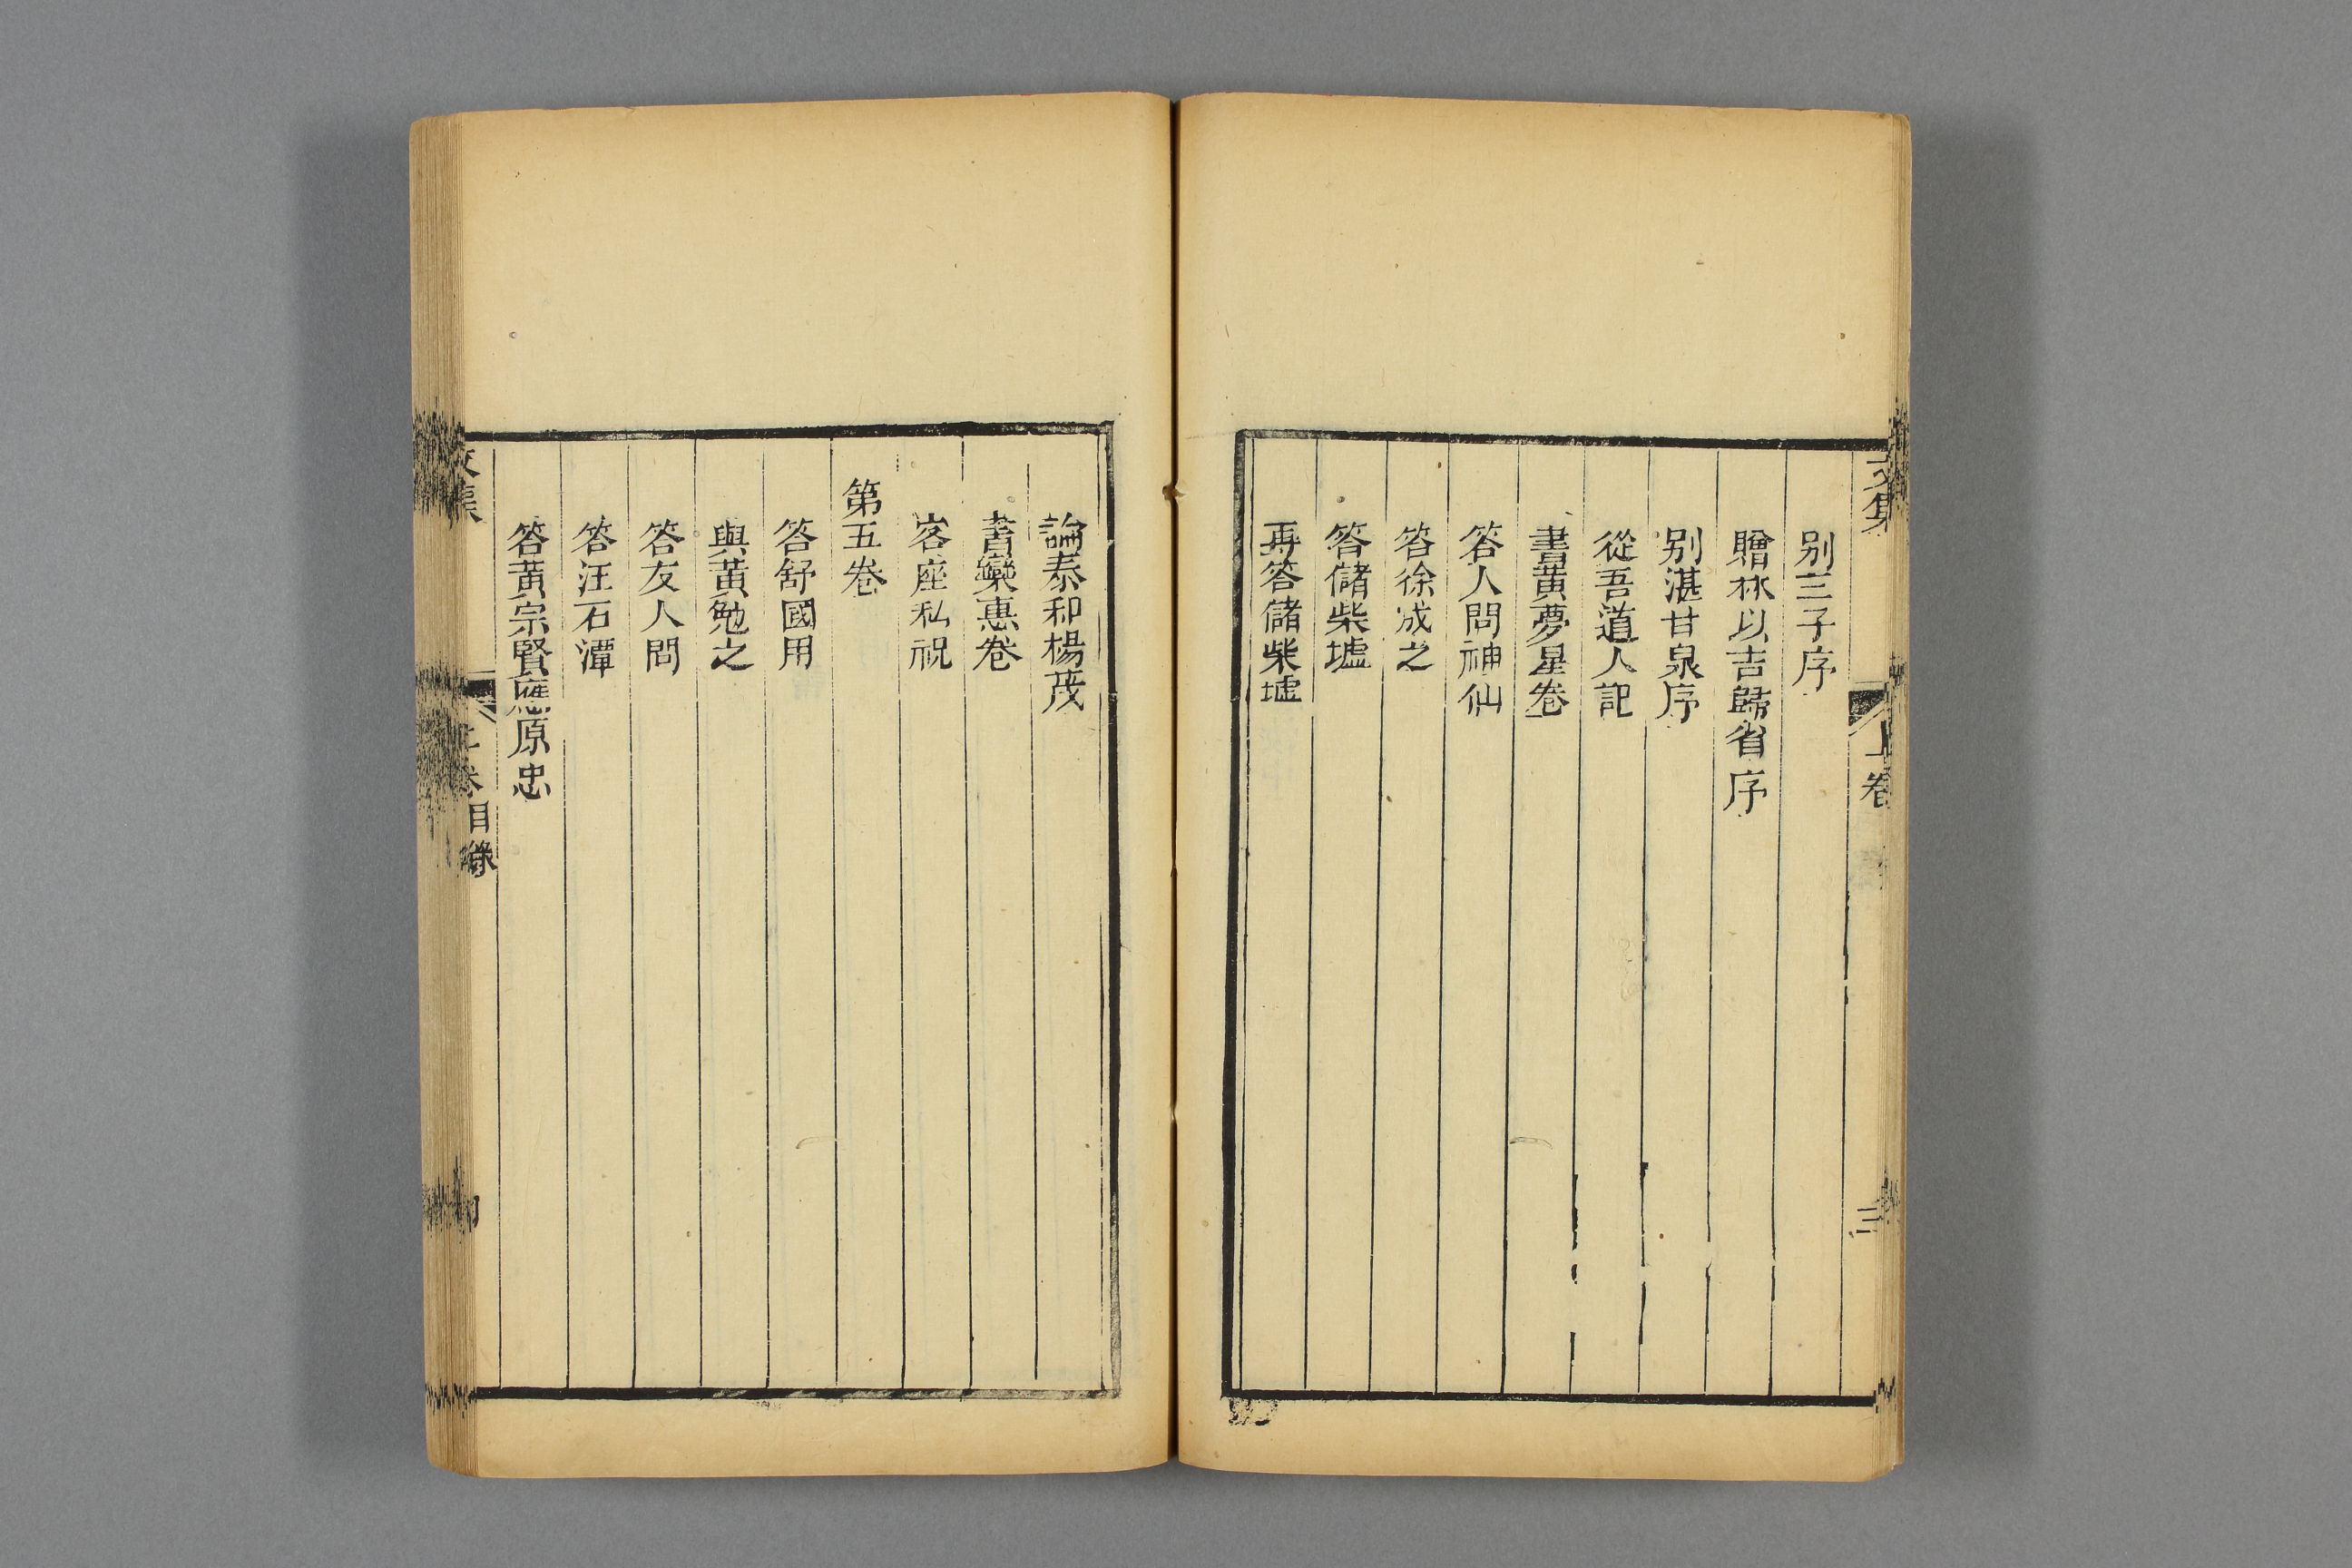 文集
上卷
三
别三子序
贈林以吉歸省序
别湛甘泉序
從吾道人記
書黃夢星卷
答人問神仙
答徐成之
答儲柴墟
再答儲柴墟
諭泰和楊茂
書欒惠卷
客座私祝
第五卷
答舒國用
與黃勉之
答友人問
答汪石潭
答黃宗賢應原忠
文集
上卷目錄